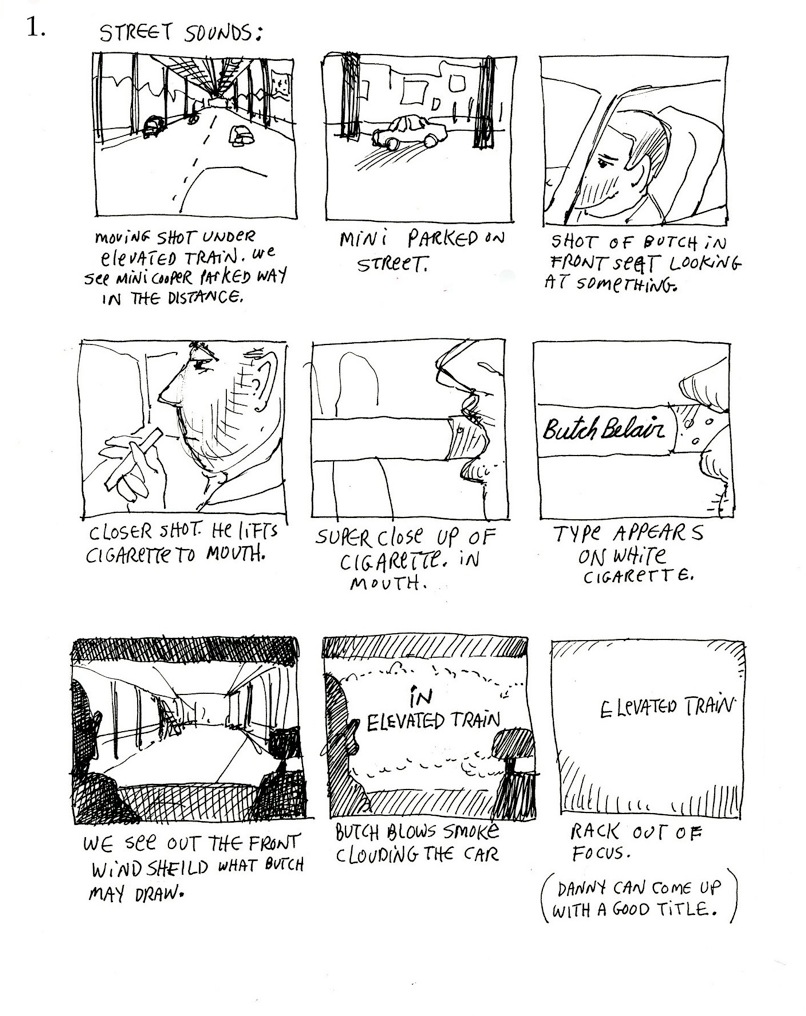 1.
STREET SOUNDS:
MOVING SHOT UNDER
ELEVATED TRAIN. WE
SEE MINI COOPER PARKED WAY
IN THE DISTANCE.
MINI PARKED ON
STREET.
SHOT OF BUTCH IN
FRONT SEAT LOOKING
AT SOMETHING.
CLOSER SHOT. HE LIFTS
CIGARETTE TO MOUTH.
SUPER CLOSE UP OF
CIGARETTE. IN
MOUTH.
Butch Belair
TYPE APPEARS
ON WHITE
CIGARETTE.
WE SEE OUT THE FRONT
WINDSHEILD WHAT BUTCH
MAY DRAW.
IN
ELEVATED TRAIN
BUTCH BLOWS SMOKE
CLOUDING THE CAR
ELEVATED TRAIN
RACK OUT OF
FOCUS.
(DANNY CAN COME UP
WITH A GOOD TITLE.)